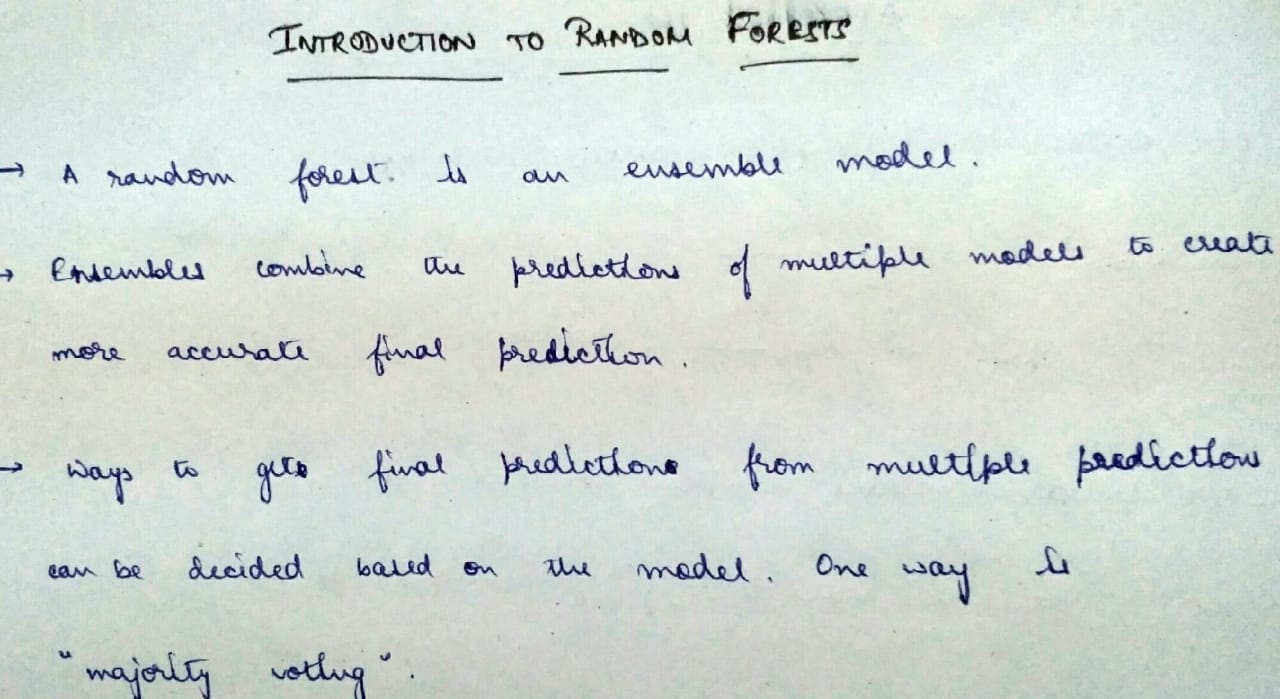 INTRODUCTION TO RANDOM FORESTS
→ A random forest. is an ensemble model.
→ Ensembles combine the predictions of multiple models to create
more accurate final prediction.
→ Ways to gets final predictions from multiple prediction
can be decided based on the model. One way is
"majority voting".